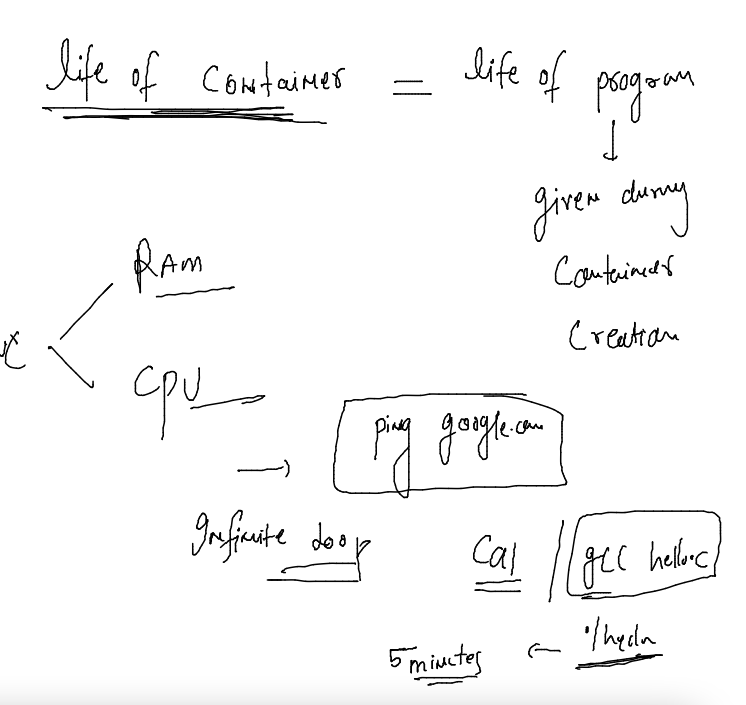 life of Container = life of program
given during
Container
Creation
RAM
CPU
ping google.com
Infinite loop
Cal / gcc hello.c
5 minutes